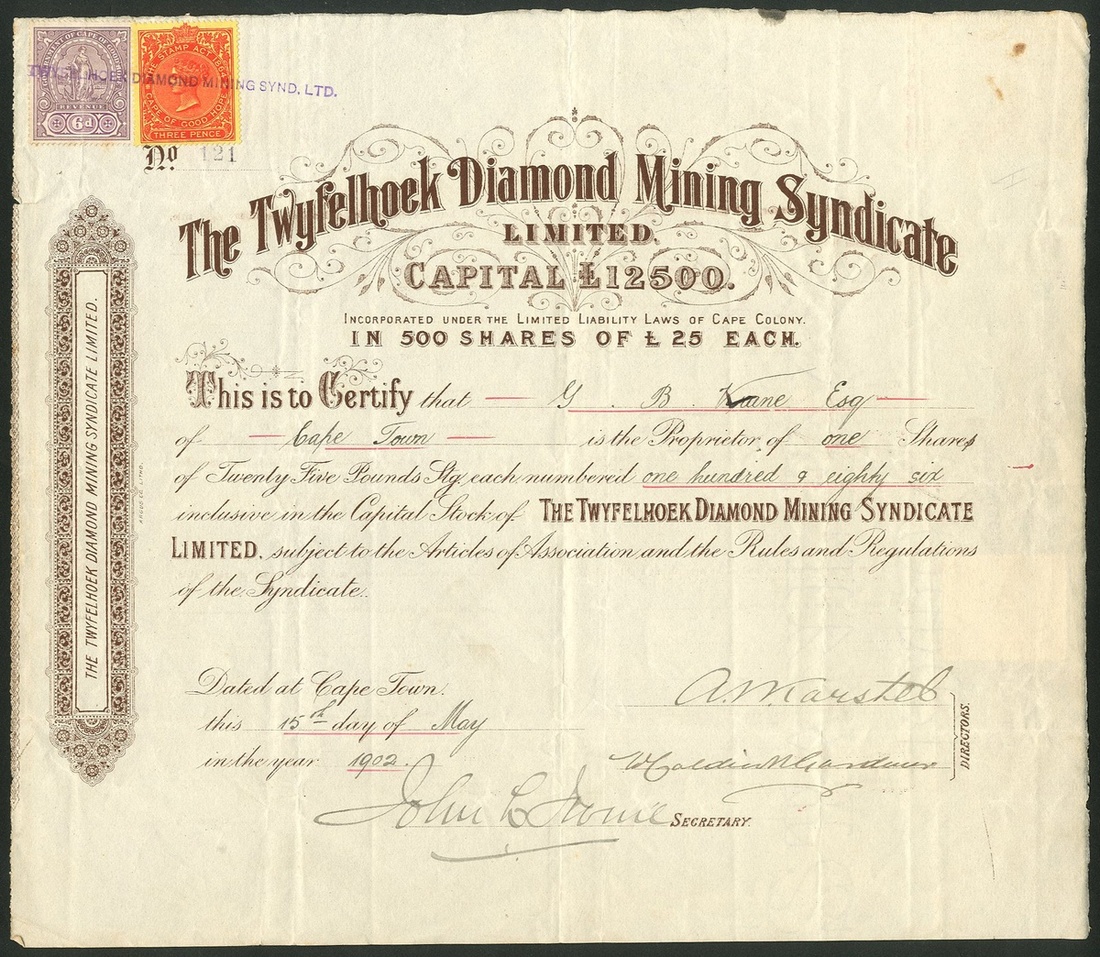 GOVERNMENT OF CAPE OF GOOD HOPE
REVENUE
6d
THE STAMP ACT 1864
CAPE OF GOOD HOPE
THREE PENCE
TWYFELHOEK DIAMOND MINING SYND. LTD.
No 121
The Twyfelhoek Diamond Mining Syndicate
LIMITED.
CAPITAL £12500.
INCORPORATED UNDER THE LIMITED LIABILITY LAWS OF CAPE COLONY.
IN 500 SHARES OF £25 EACH.
This is to Certify that G. B. Keane Esq
of Cape Town is the Proprietor of one Shares
of Twenty Five Pounds Stg each numbered one hundred & eighty six
inclusive in the Capital Stock of THE TWYFELHOEK DIAMOND MINING SYNDICATE
LIMITED, subject to the Articles of Association and the Rules and Regulations
of the Syndicate.
Dated at Cape Town.
this 15th day of May
in the year 1902.
DIRECTORS.
John L SECRETARY.
THE TWYFELHOEK DIAMOND MINING SYNDICATE LIMITED.